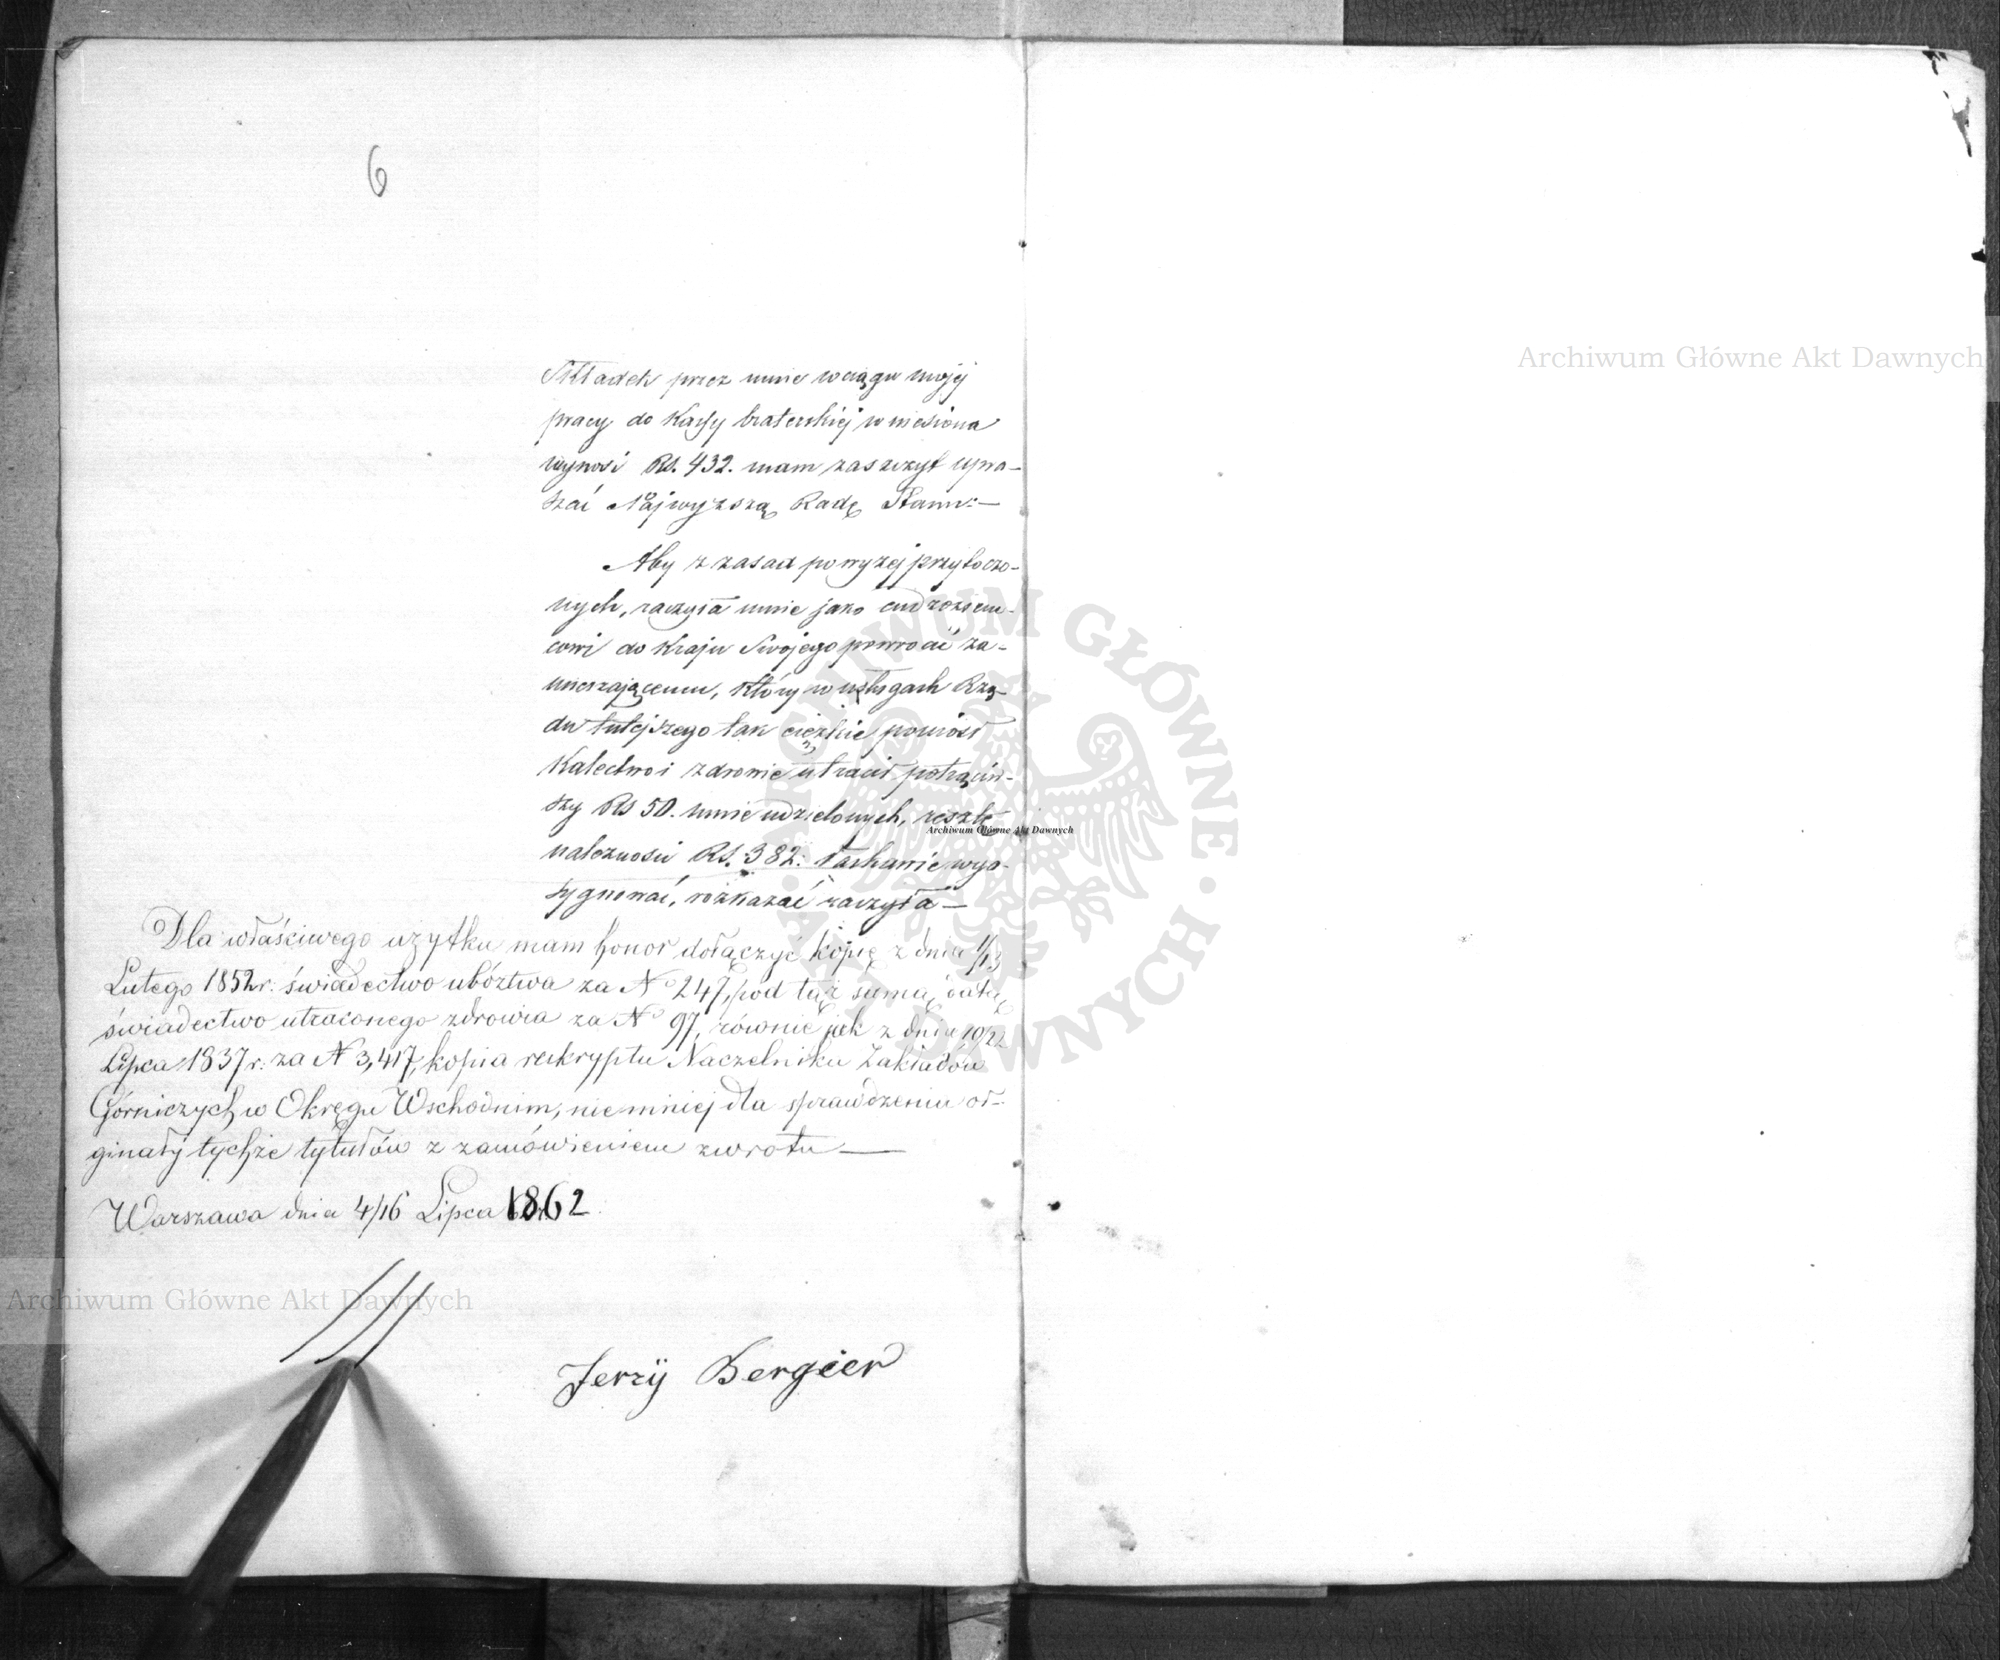 6
Składek przez mnie wciągu mojej
pracy do Kassy braterskiej wniesiona
wynosi Rs. 432. mam zaszczyt upra-
szać Najwyższą Radę Stanu:—
Aby z zasad powyżej przytoczo-
nych, raczyła mnie jako cudzoziem-
cowi do Kraju Swojego powrócić za-
mierzającemu, który w usługach Rzą-
du tutejszego tak ciężkie poniósł
Kalectwo i zdrowie utracił potrąciw-
szy Rs 50. mnie udzielonych, resztę
należności Rs. 382. łaskawie wya-
sygnować, rozkazać raczyła—
Dla właściwego użytku mam honor dołączyć kopię z dnia 1/13
Lutego 1852r: świadectwo ubóztwa za N 247, pod tąż samą datą
świadectwo utraconego zdrowia za N 97, równie jak z dnia 10/22
Lipca 1837r: za N 3,417, kopia reskryptu Naczelnika Zakładów
Górniczych w Okręgu Wschodnim, niemniej dla sprawdzenia or-
ginały tychże tytułów z zamówieniem zwrotu —
Warszawa dnia 4/16 Lipca 1862
Jerzÿ Bergier
Archiwum Główne Akt Dawnych
Archiwum Główne Akt Dawnych
Archiwum Główne Akt Dawnych
ARCHIWUM GŁÓWNE AKT DAWNYCH